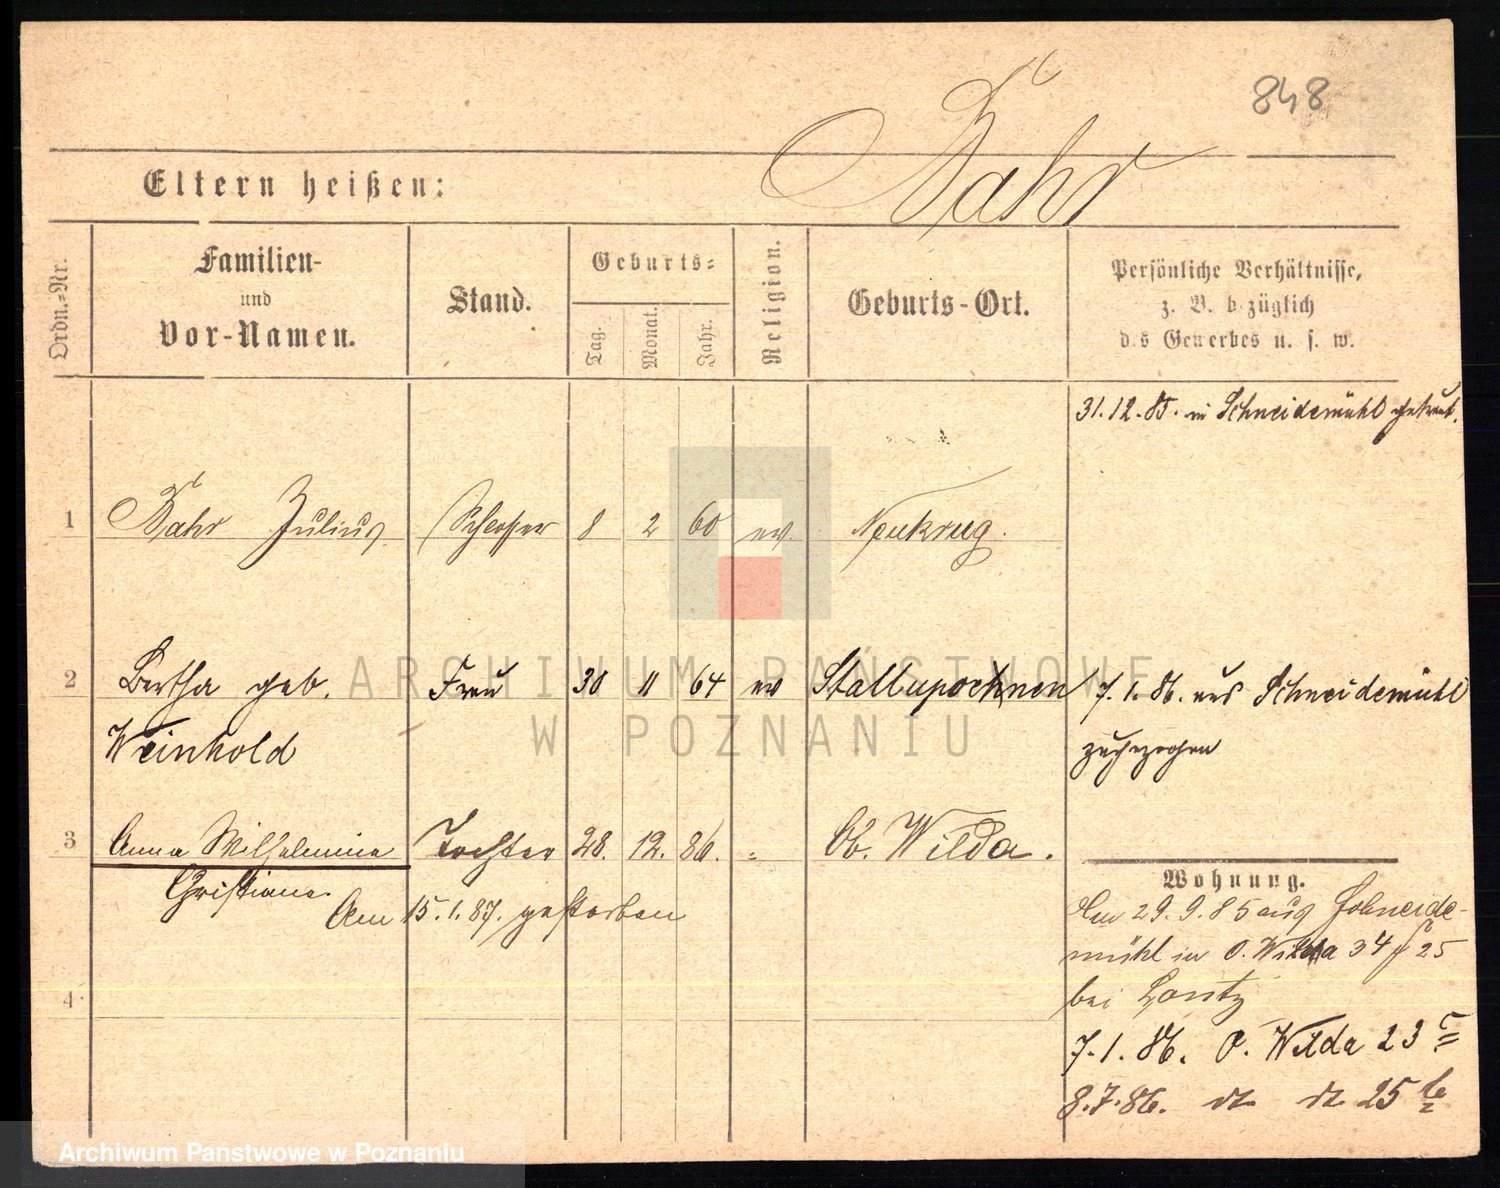 848
Eltern heißen: Bahr
Ordn.-Nr.
Familien-
und
Vor-Namen.
Stand.
Geburts-
Tag.
Monat.
Jahr.
Religion.
Geburts-Ort.
Persönliche Verhältnisse,
z. B. bezüglich
des Gewerbes u. s. w.
31.12.85. in Schneidemühl getraut.
1 Bahr Julius Schlosser 8 2 60 ev. Neukrug.
2 Bertha geb. Frau 30 11 64 ev Stallupoehnen 7.1.86. aus Schneidemühl
Weinhold zugezogen
3 Anna Wilhelmine Tochter 28. 12. 86. " Ob. Wilda.
Christiane.
Am 15.1.87. gestorben
4
Wohnung.
Am 29.9.85 aus Schneide-
mühl in O. Wilda 34 25
bei
7.1.86. O. Wilda 23
8.7.86. dt dt 25
ARCHIWUM PAŃSTWOWE
W POZNANIU
Archiwum Państwowe w Poznaniu